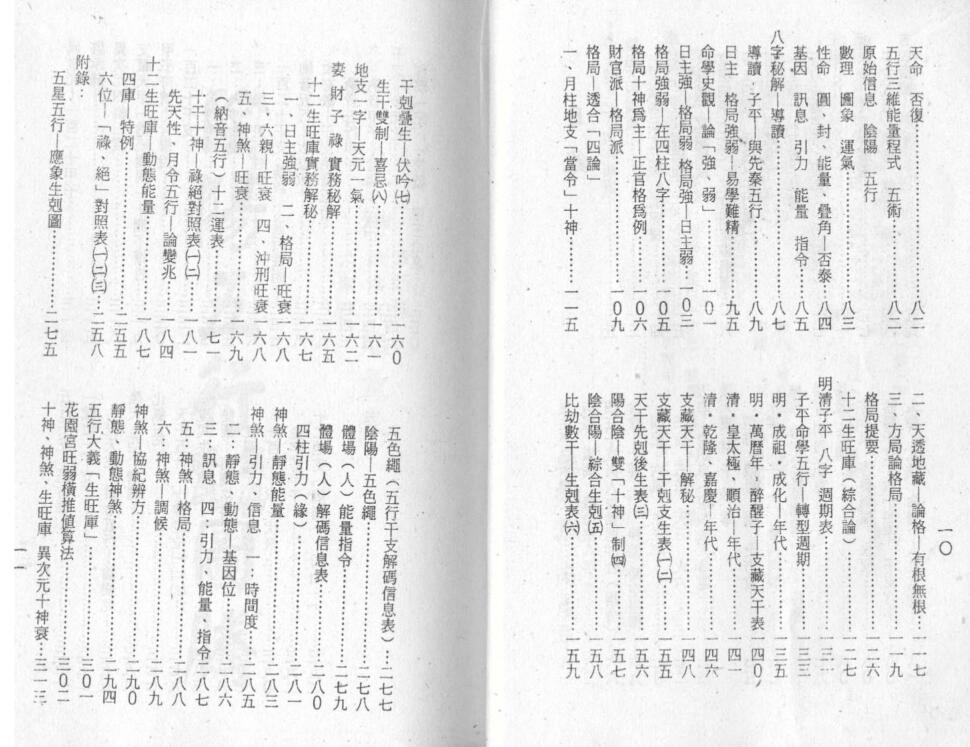 一〇
天命　否復……八二
五行三維能量程式　五術……八二
原始信息　陰陽　五行
數理　圖象　運氣……八三
性命　圓、封、能量、疊角—否泰……八四
基因　訊息　引力　能量　指令……八五
八字秘解—導讀……八七
導讀：子平—與先秦五行……八九
日主　格局強弱—易學難精……九五
命學史觀—論「強、弱」……一〇一
日主強—格局弱　格局強—日主弱…一〇三
格局強弱—在四柱八字……一〇五
格局十神爲主—正官格爲例……一〇六
財官派—格局派……一〇九
格局—透合「四論」
一、月柱地支「當令」十神……一一五
二、天透地藏—論格—有根無根…一一七
三、方局論格局……一一九
格局提要……一二六
十二生旺庫（綜合論）……一二七
明清子平　八字　週期表……一三一
子平命學五行—轉型週期……一三三
明・成祖・成化—年代……一三五
明・萬曆年，醉醒子—支藏天干表…一四〇
清・皇太極、順治—年代……一四一
清・乾隆、嘉慶—年代……一四六
支藏天干—解秘……一四八
支藏天干—干剋支生表㈠㈡……一五五
天干先剋後生表㈢……一五六
陽合陰—雙「十神」制㈣……一五七
陰合陽—綜合生剋㈤……一五八
比劫數干—生剋表㈥……一五九
干剋疊生—伏吟㈦……一六〇
生干雙制—喜忌㈧……一六一
地支一字—天元一氣……一六二
妻　財　子　祿　實務秘解……一六五
十二生旺庫實務解秘……一六七
一、日主強弱　二、格局—旺衰…一六八
三、六親—旺衰　四、沖刑旺衰…一六八
五、神煞—旺衰……一六九
（納音五行）十二運表……一七一
十干十神—祿絕對照表㈠㈡……一八一
先天性、月令五行—論變兆……一八四
十二生旺庫—動態能量……一八七
四庫—特例……二五五
六位—「祿、絕」對照表㈠㈡㈢…二五八
附錄：
五星五行—應象生剋圖……二七五
五色繩（五行干支解碼信息表）…二七七
陰陽—五色繩……二七八
體場（人）能量指令……二七九
體場（人）解碼信息表……二八〇
四柱引力（緣）……二八一
神煞—靜態能量……二八三
神煞—引力、信息　一：時間度……二八五
二：靜態、動態—基因位……二八六
三：訊息　四：引力、能量、指令二八七
五：神煞—格局……二八八
六：神煞—調候……二八九
神煞—協紀辨方……二九〇
靜態、動態神煞……二九四
五行大義「生旺庫」……三〇一
花園宮旺弱橫推值算法……三〇二
十神、神煞、生旺庫　異次元十神衰…三一三
一一